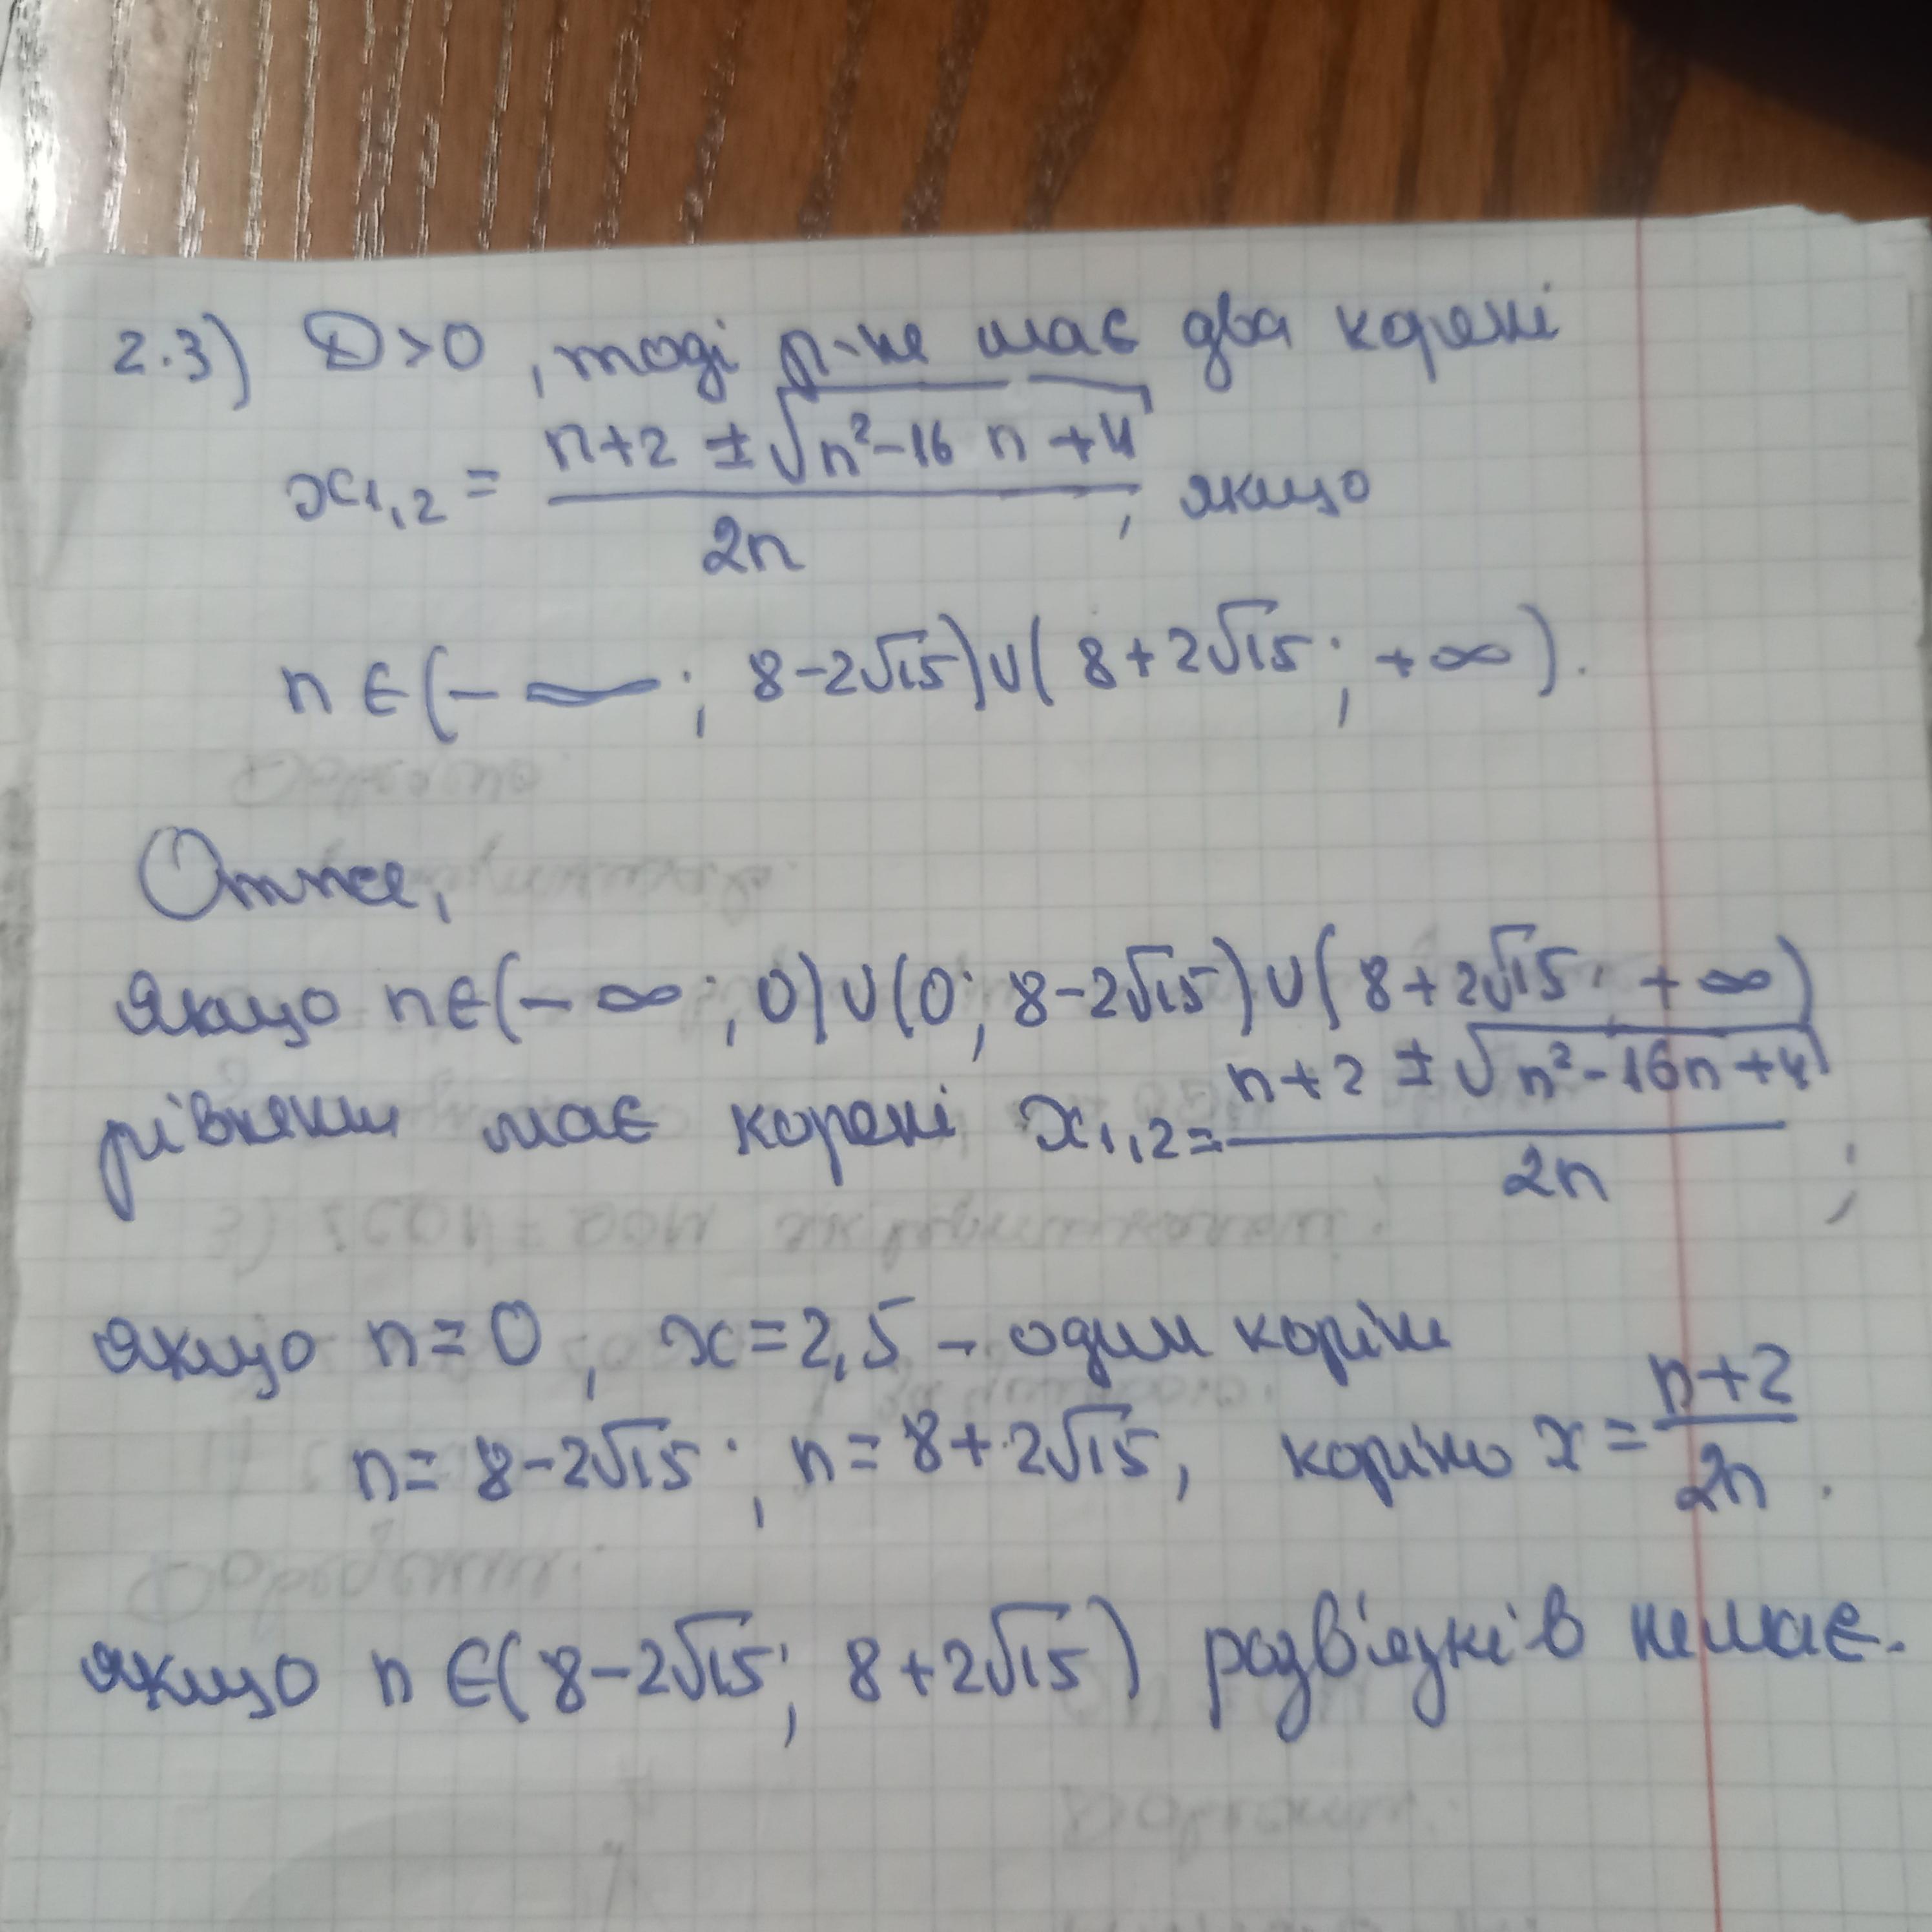 2.3) D>0, тоді р-не має два корені
x₁,₂ = (n+2 ± √(n²-16n+4)) / 2n, якщо
n∈(-∞; 8-2√15)∪(8+2√15; +∞).
Отже,
якщо n∈(-∞; 0)∪(0; 8-2√15)∪(8+2√15; +∞)
рівняння має корені x₁,₂ = (n+2 ± √(n²-16n+4)) / 2n;
якщо n=0, x=2,5 - один корінь
n=8-2√15; n=8+2√15, корінь x = (n+2) / 2n.
якщо n∈(8-2√15; 8+2√15) розв'язків немає.